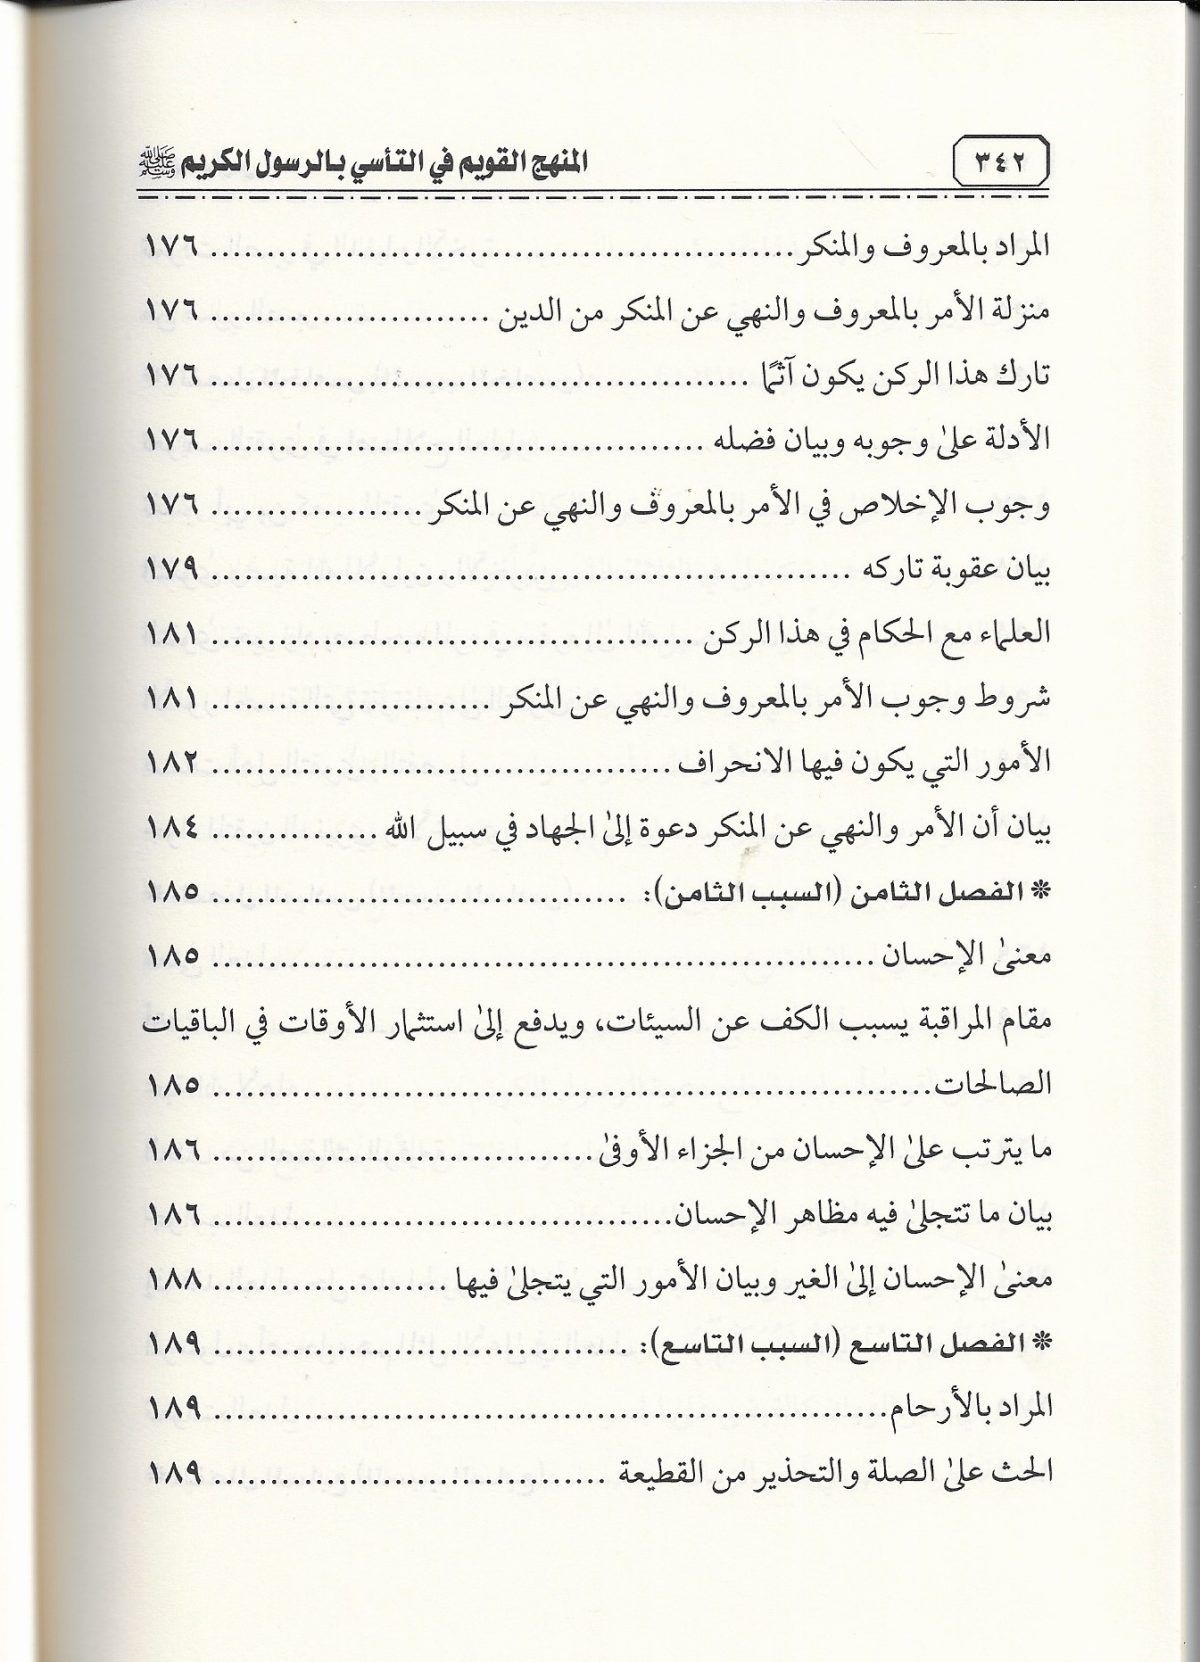 ٣٤٢
المنهج القويم في التأسي بالرسول الكريم ﷺ
المراد بالمعروف والمنكر ........................................ ١٧٦
منزلة الأمر بالمعروف والنهي عن المنكر من الدين ......................... ١٧٦
تارك هذا الركن يكون آثمًا ........................................ ١٧٦
الأدلة علىٰ وجوبه وبيان فضله ........................................ ١٧٦
وجوب الإخلاص في الأمر بالمعروف والنهي عن المنكر ................... ١٧٦
بيان عقوبة تاركه ........................................ ١٧٩
العلماء مع الحكام في هذا الركن ........................................ ١٨١
شروط وجوب الأمر بالمعروف والنهي عن المنكر ......................... ١٨١
الأمور التي يكون فيها الانحراف ........................................ ١٨٢
بيان أن الأمر والنهي عن المنكر دعوة إلىٰ الجهاد في سبيل الله ............... ١٨٤
❊ الفصل الثامن (السبب الثامن): ..................................... ١٨٥
معنىٰ الإحسان ........................................ ١٨٥
مقام المراقبة يسبب الكف عن السيئات، ويدفع إلىٰ استثمار الأوقات في الباقيات
الصالحات ........................................ ١٨٥
ما يترتب علىٰ الإحسان من الجزاء الأوفىٰ .................................. ١٨٦
بيان ما تتجلىٰ فيه مظاهر الإحسان ........................................ ١٨٦
معنىٰ الإحسان إلىٰ الغير وبيان الأمور التي يتجلىٰ فيها ..................... ١٨٨
❊ الفصل التاسع (السبب التاسع): ..................................... ١٨٩
المراد بالأرحام ........................................ ١٨٩
الحث علىٰ الصلة والتحذير من القطيعة ................................... ١٨٩